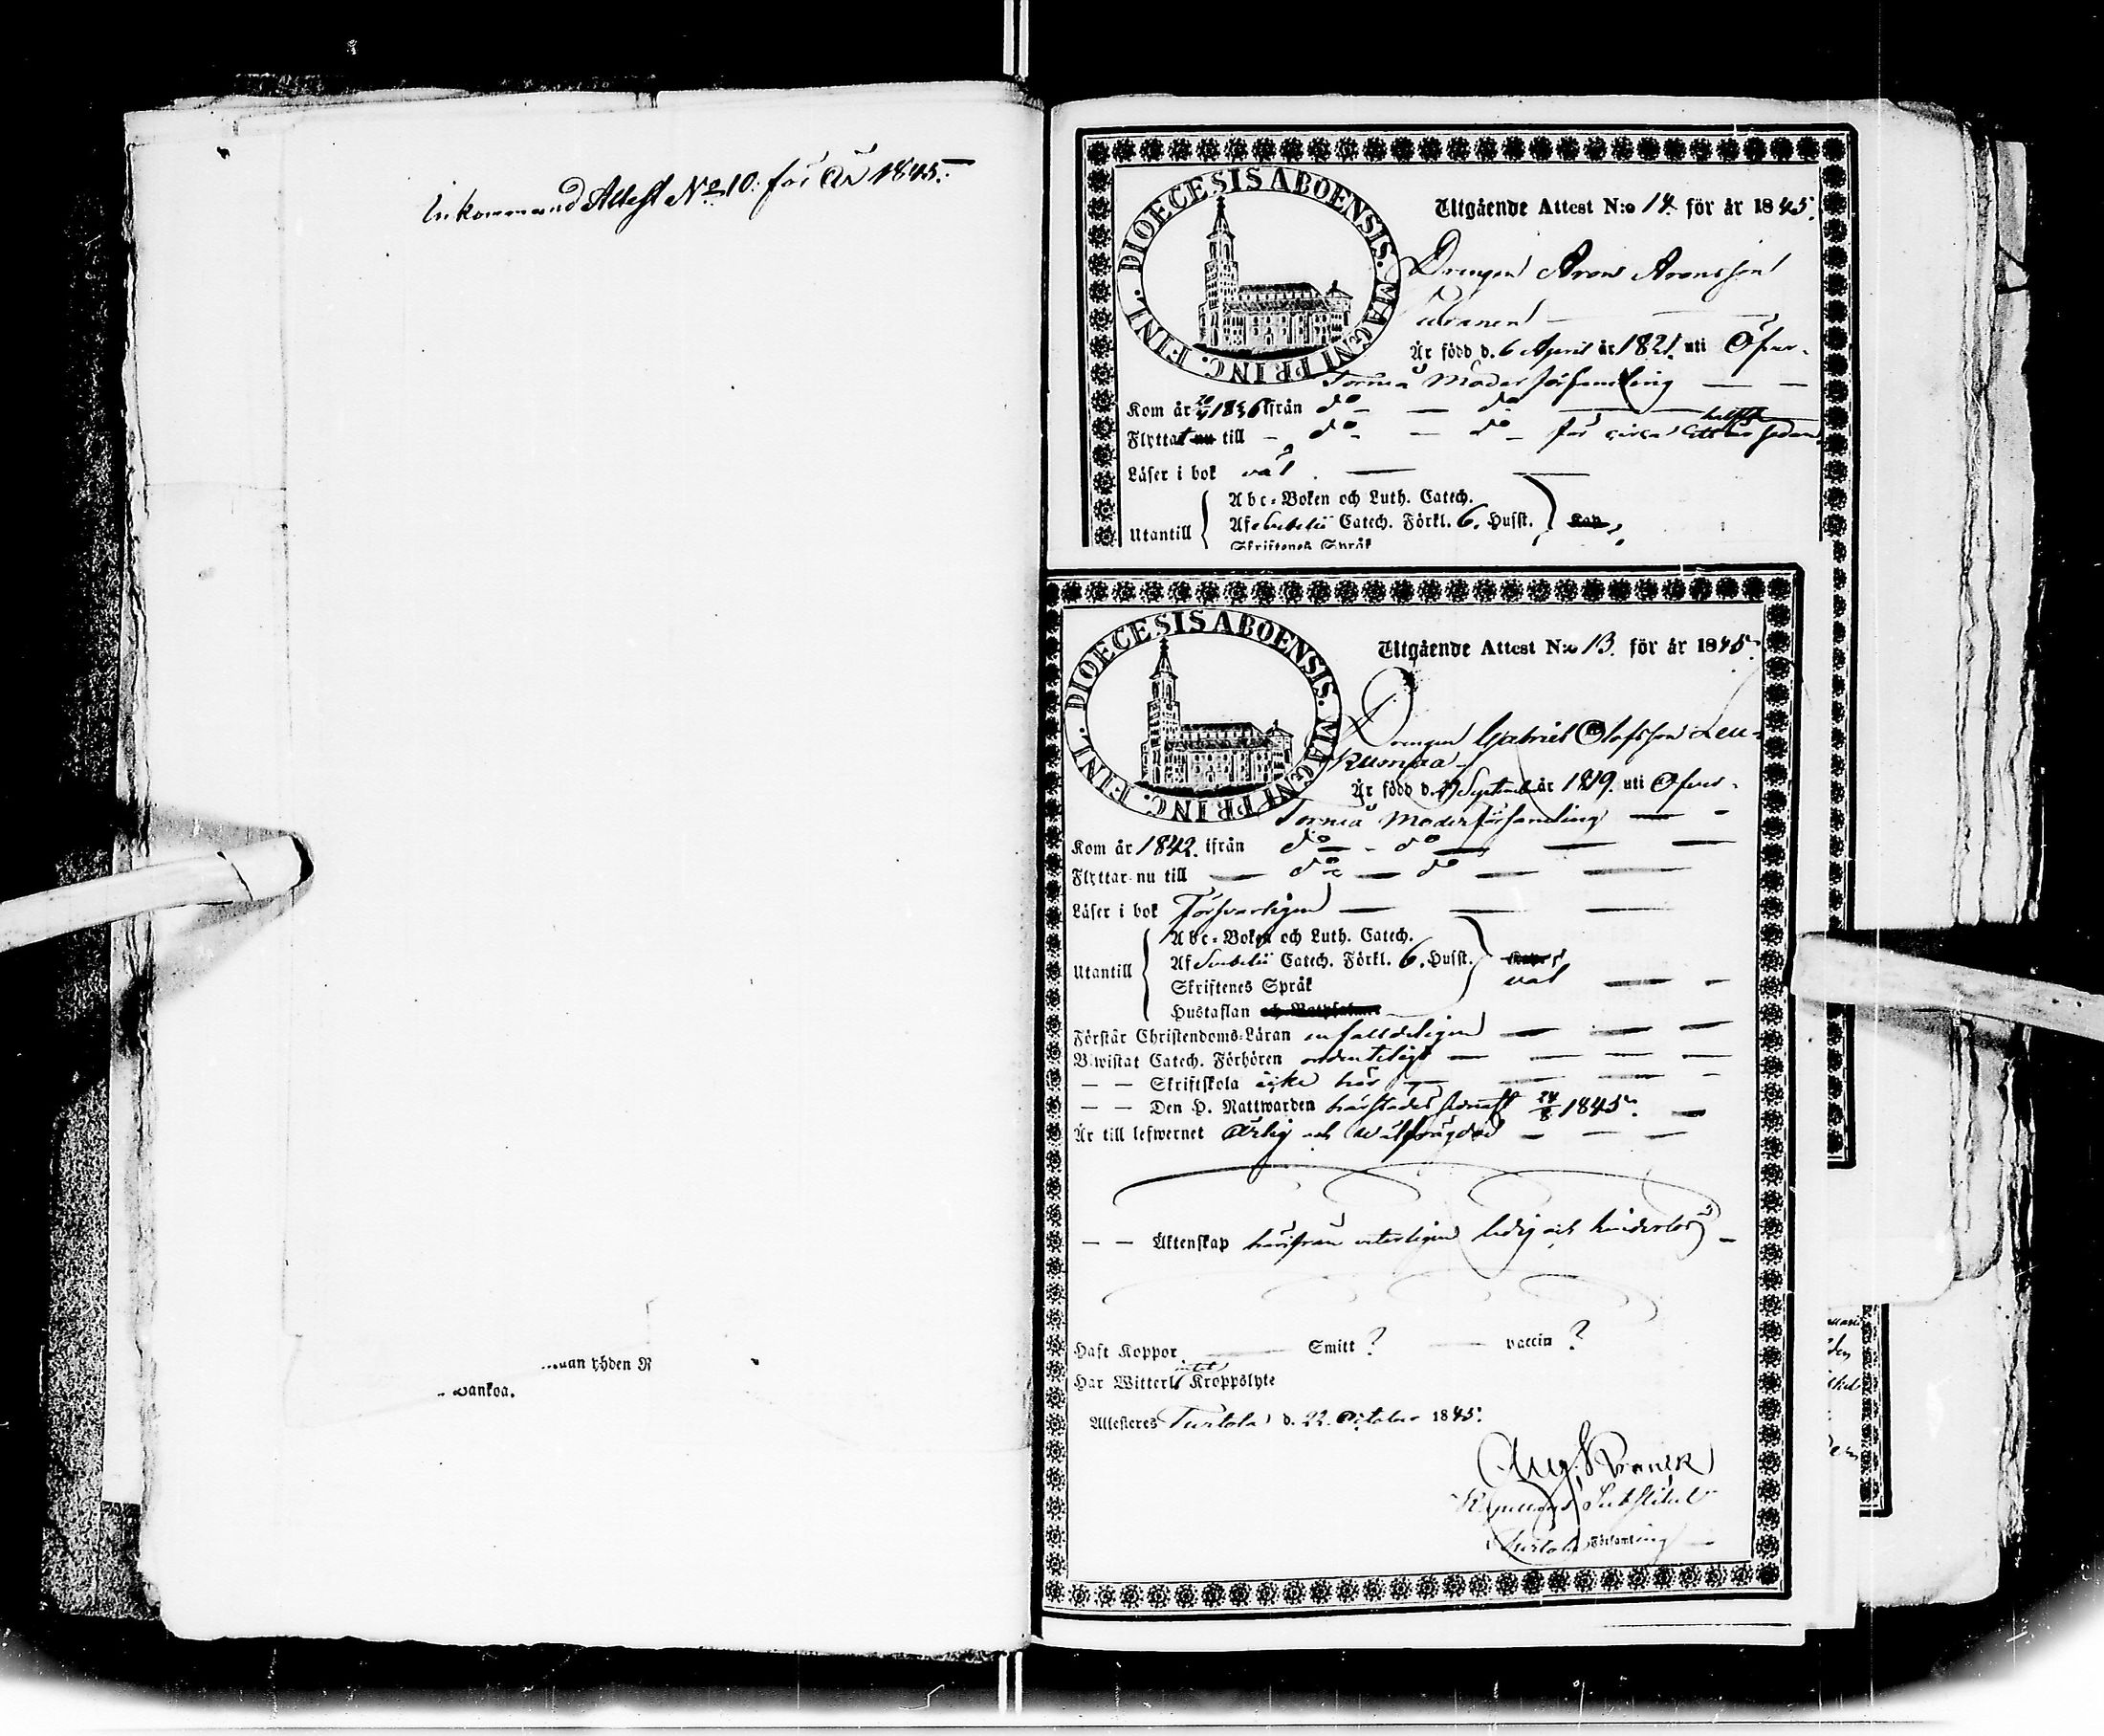 Inkommand Attest No 10. för År 1845.
...uan yhden R
wankoa.
DIOECESIS ABOENSIS. MAGNI PRINC. FINL.
Utgående Attest N:o 14. för år 1845.
Drengen Aron Aronsson
Är född d. 6 April år 1821. uti Öfver-
Torneå Moderförsamling
Kom år 1836 ifrån do do
Flyttat nu till do do för circa ett halft år sedan
Läser i bok väl
Abc-Boken och Luth. Catech.
Utantill
Af Svebelii Catech. Förkl. 6. Husst.
Skriftenes Språk
DIOECESIS ABOENSIS. MAGNI PRINC. FINL.
Utgående Attest N:o 13. för år 1845.
Drengen Gabriel Olofsson Leu-
kumaa
Är född d. September år 1819. uti Öfver-
Torneå Moderförsamling
Kom år 1842. ifrån do do
Flyttar nu till do do
Läser i bok Försvarligen
Abc-Boken och Luth. Catech.
Utantill
Af Svebelii Catech. Förkl. 6. Husst.
väl
Skriftenes Språk
Hustaflan
Förstår Christendoms-Läran enfalldeligen
B.wistat Catech. Förhören ordenteligt
— — Skriftskola icke här
— — Den H. Nattwarden härstädes sednast 24/8 1845.
Är till lefwernet Ärlig och wälfrägdad
— — Äktenskap härifrån veterligen ledig och hinderlös
Haft Koppor Smitt ? vaccin ?
Har Witterl. intet Kroppslyte
Attesteres Turtola d. 22. October 1845.
Substitut
Turtola Församling